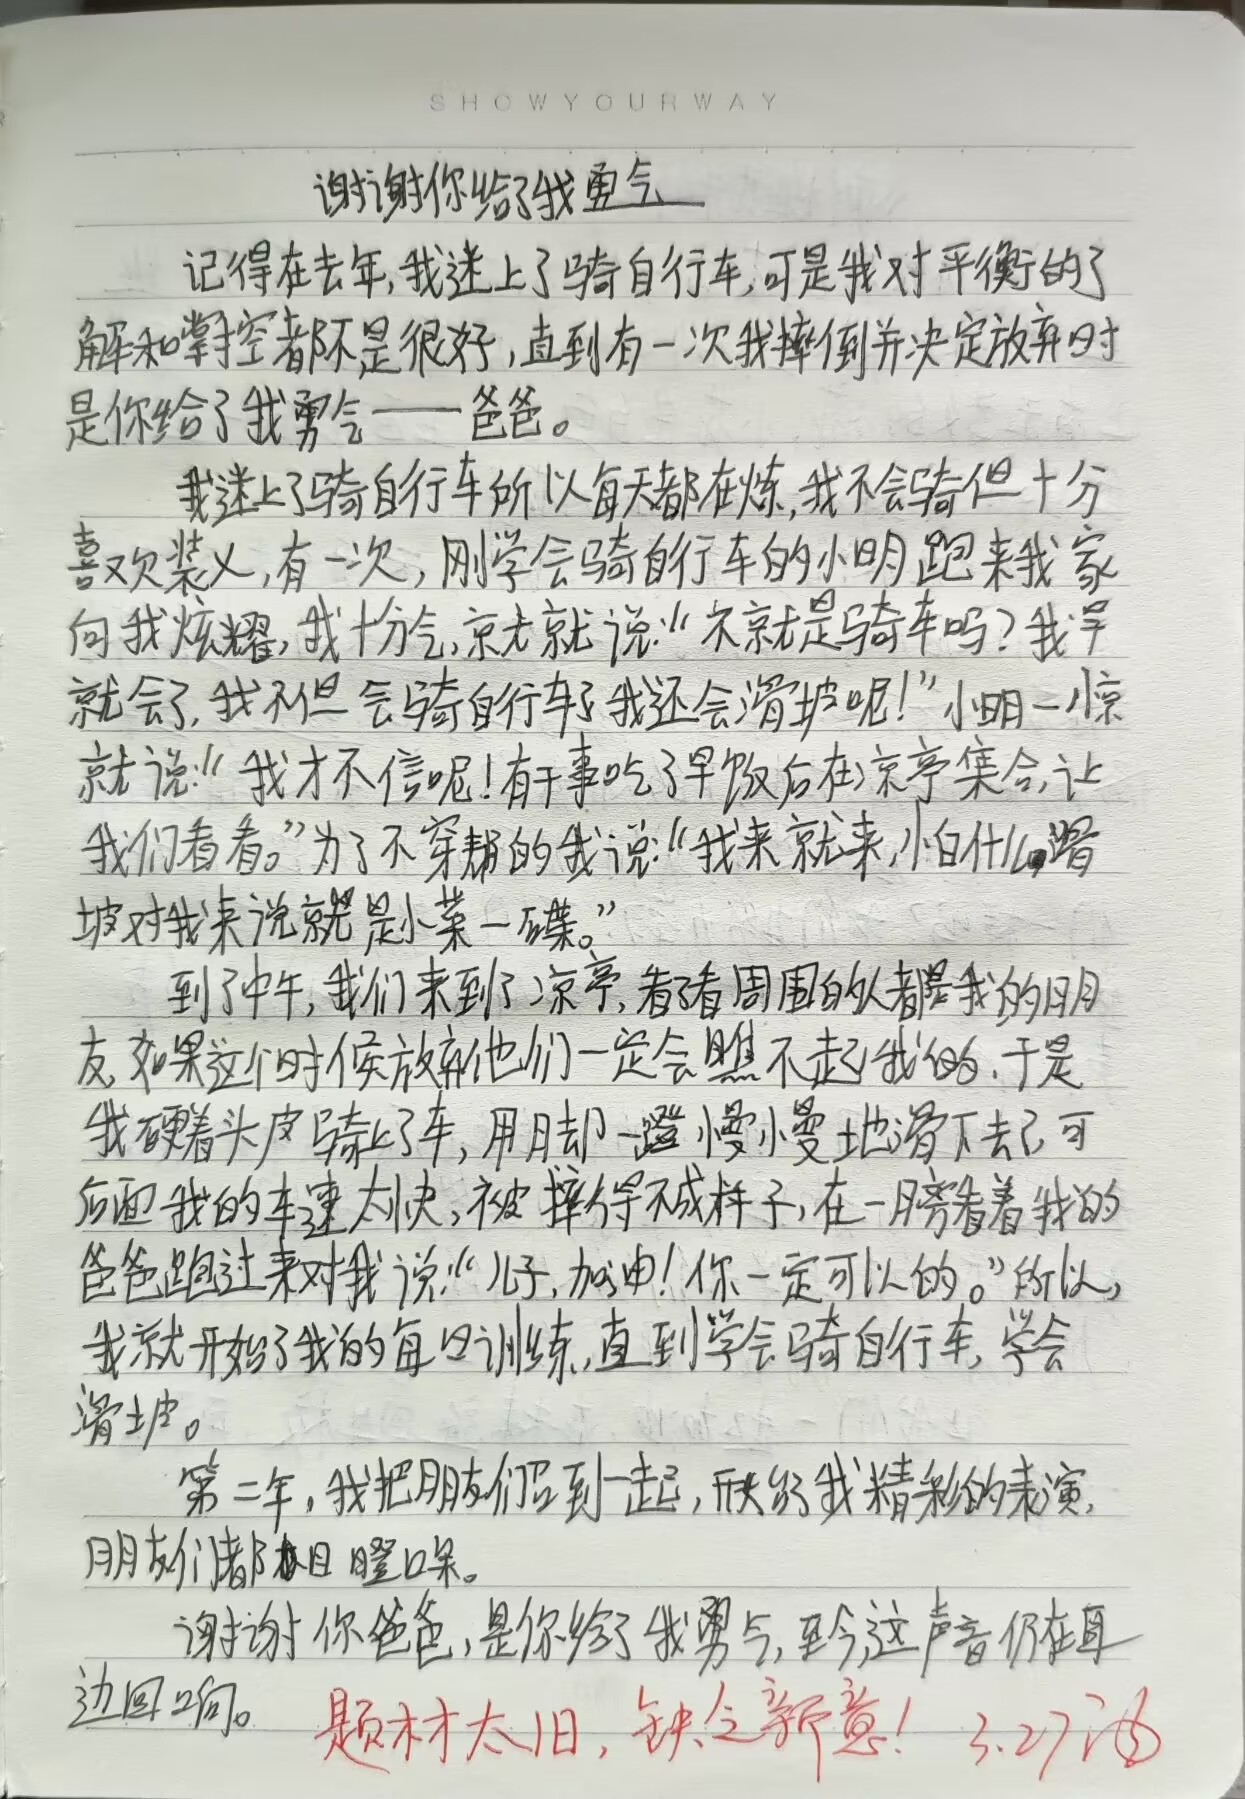 SHOWYOURWAY
谢谢你给了我勇气
记得在去年,我迷上了骑自行车,可是我对平衡的了
解和掌控都不是很好,直到有一次我摔倒并决定放弃时
是你给了我勇气——爸爸。
我迷上了骑自行车所以每天都在炼,我不会骑但十分
喜欢装乂,有一次,刚学会骑自行车的小明跑来我家
向我炫耀,我十分气,就说:“不就是骑车吗?我早
就会了,我不但会骑自行车了我还会滑坡呢!”小明一惊
就说:“我才不信呢!有干事吃了早饭后在凉亭集合,让
我们看看。”为了不穿帮的我说:“我来就来,小白什么滑
坡对我来说就是小菜一碟。”
到了中午,我们来到了凉亭,看了看周围的人都是我的朋
友,如果这个时候放弃他们一定会瞧不起我的,于是
我硬着头皮骑上了车,用脚一蹬慢慢地滑下去了可
后面我的车速太快,被摔得不成样子,在一旁看着我的
爸爸跑过来对我说:“儿子,加油!你一定可以的。”所以,
我就开始了我的每日训练,直到学会骑自行车,学会
滑坡。
第二年,我把朋友们召到一起,献给了我精彩的表演,
朋友们都目瞪口呆。
谢谢你爸爸,是你给了我勇气,至今这声音仍在耳
边回响。
题材太旧,缺乏新意! 3.27